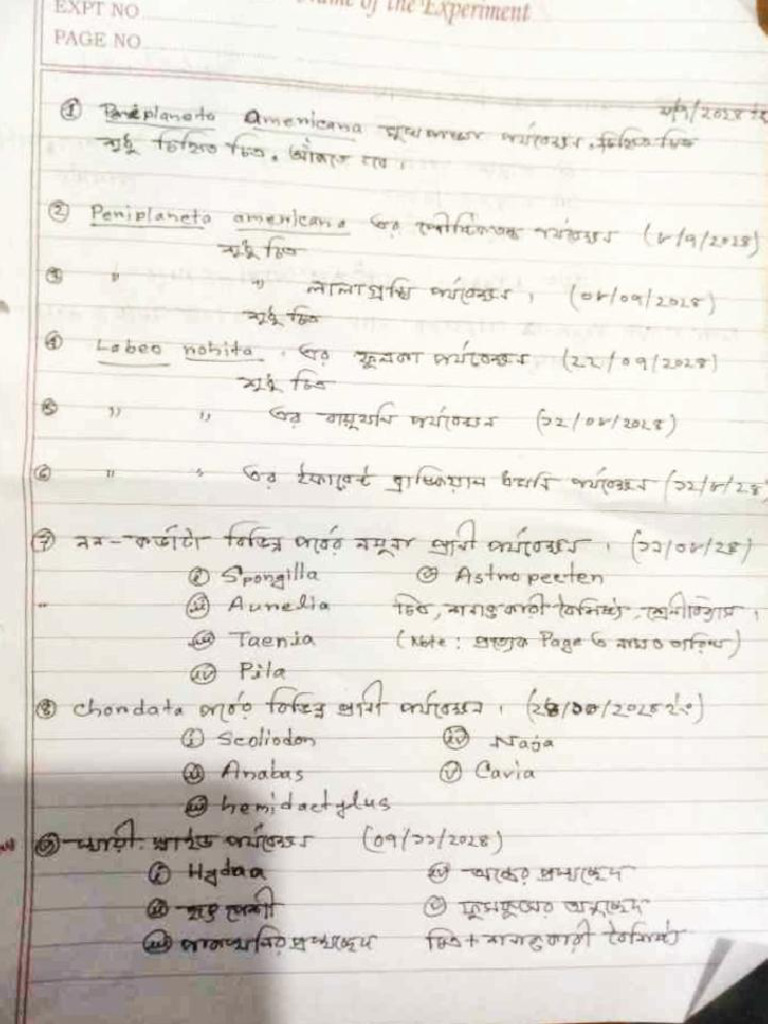 EXPT NO
Name of the Experiment
PAGE NO
① Periplaneta americana পর্যবেক্ষণ, চিহ্নিত চিত্র
শুধু চিহ্নিত চিত্র, আঁকতে হবে।
② Periplaneta americana এর পৌষ্টিকতন্ত্র পর্যবেক্ষণ (৮/৯/২০২৪)
শুধু চিত্র
③ " " লালাগ্রন্থি পর্যবেক্ষণ। (০৮/০৯/২০২৪)
শুধু চিত্র
④ Labeo rohita. এর ফুলকা পর্যবেক্ষণ (২২/০৯/২০২৪)
শুধু চিত্র
⑤ " " এর বায়ুথলি পর্যবেক্ষণ (১২/০৮/২০২৪)
⑥ " " এর ইফারেন্ট ব্রাঙ্কিয়াল ধমনি পর্যবেক্ষণ (১২/৮/২৪)
⑦ নন-কর্ডাটা বিভিন্ন পর্বের নমুনা প্রাণী পর্যবেক্ষণ। (১১/০৮/২৪)
ⓘ Spongilla ⓥ Astropecten
ⓘⓘ Aurelia চিত্র, শনাক্তকারী বৈশিষ্ট্য, শ্রেণীবিন্যাস।
ⓘⓘⓘ Taenia (Note: প্রত্যেক Page এ নাম ও তারিখ)
ⓘⓥ Pila
⑧ Chordata পর্বের বিভিন্ন প্রাণী পর্যবেক্ষণ। (২৪/১০/২০২৪ ইং)
ⓘ Scoliodon ⓘⓥ Naja
ⓘⓘ Anabas ⓥ Cavia
ⓘⓘⓘ hemidactylus
⑨ স্থায়ী স্লাইড পর্যবেক্ষণ (০৭/১১/২০২৪)
ⓘ Hydra ⓘⓥ ত্বকের প্রস্থচ্ছেদ
ⓘⓘ পেশী ⓥ ফুসফুসের অনুচ্ছেদ
ⓘⓘⓘ প্রস্থচ্ছেদ চিত্র + শনাক্তকারী বৈশিষ্ট্য